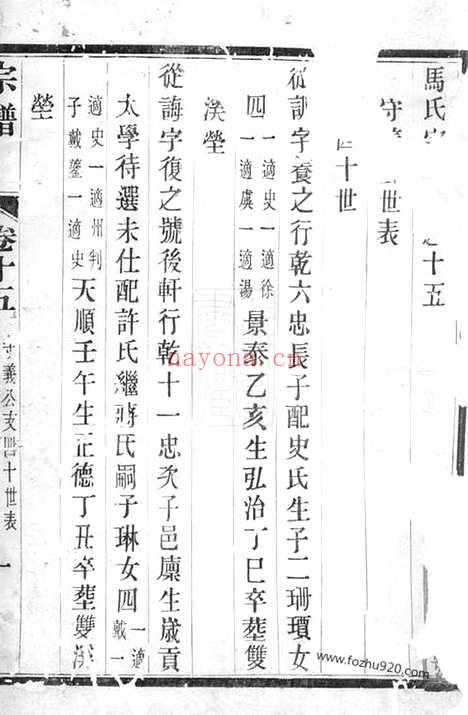 馬氏 十五
守 世表
十世
從訓字養之行乾六忠長子配史氏生子二珊瓊女
四一適史一適徐一適虞一適湯景泰乙亥生弘治丁巳卒塟雙
渓塋
從誨字復之號後軒行乾十一忠次子邑廪生嵗貢
太學待選未仕配許氏繼蔣氏嗣子琳女四一適戴一
適史一適州判子戴鎏一適史天順壬午生正德丁丑卒塟雙渓
塋
宗譜 卷十五 守義公支 十世表 一
nayona.cn
www.fozhu920.com